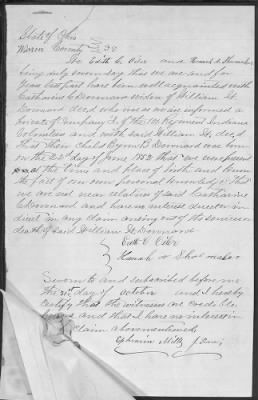 State of Ohio
Warren County } SS
We Edith C. Oiler and Hannah W Shoemaker
being duly sworn say that we are and for
years last past have been well acquainted with
Catharine C Downard widow of William H.
Downard dec'd who was as we are informed a
private of Company of the Regiment Indiana
Volunteers and with said William H. dec'd
That their child Byron B Downard was born
on the 23d day of June 1852 that we were present
and the time and place of birth and know
the fact of our own personal knowledge That
we are not near relatives of said Catharine
C Downard and have no interest direct or in
direct in any claim arising out of the services or
death of said William H. Downard
Edith C Oiler
Hannah W Shoemaker
Sworn to and subscribed before me
the day of October and I hereby
certify that the witnesses are credible
and that I have no interest in
claim above mentioned
Ephraim Mills